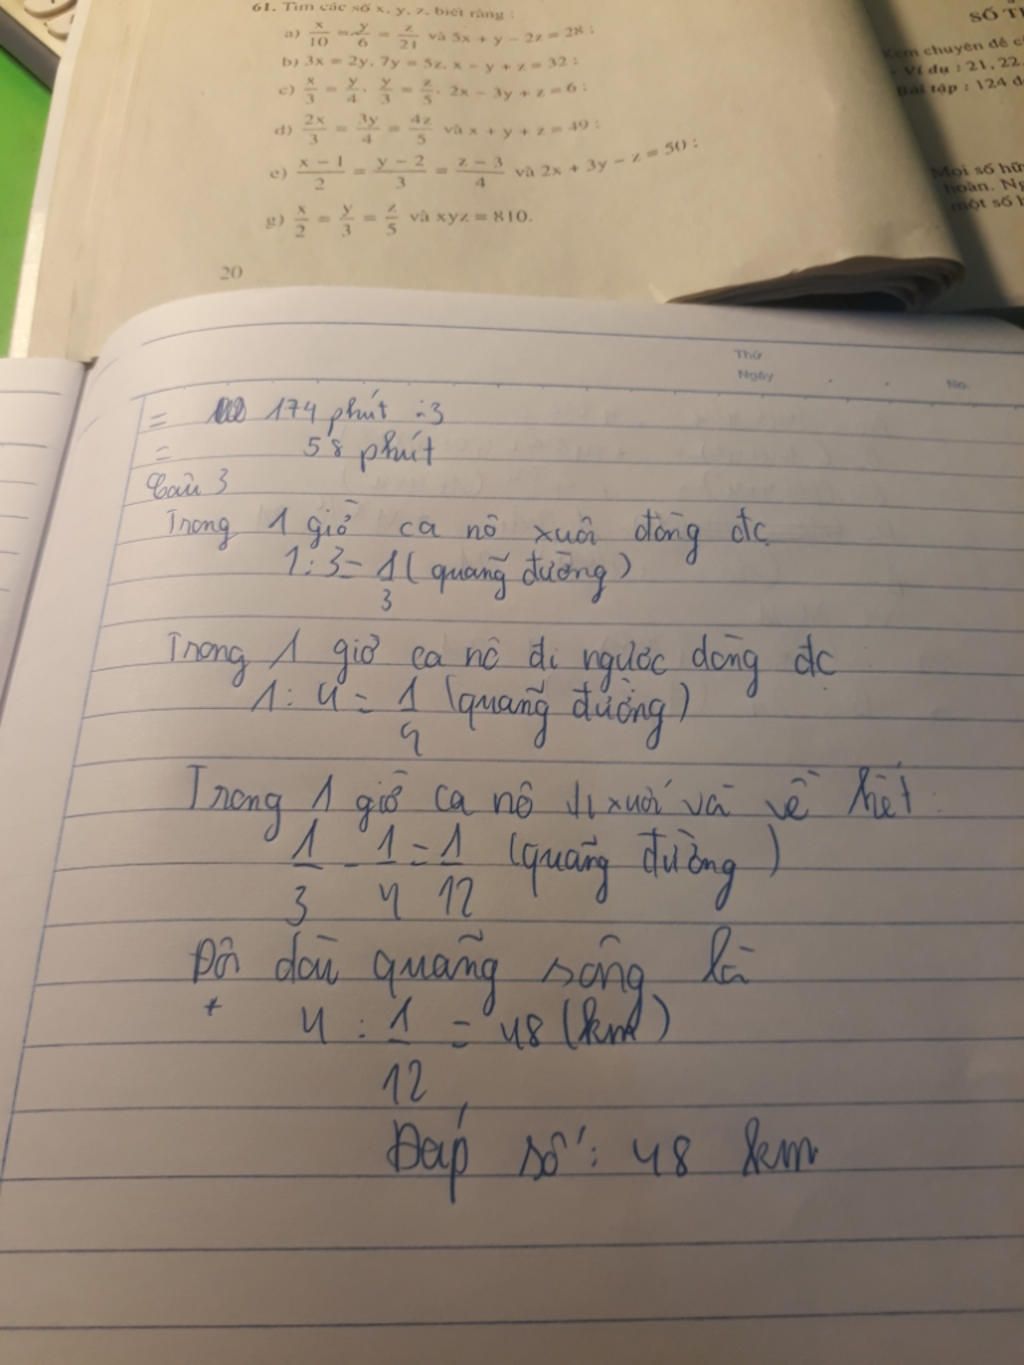 61. Tìm các số x, y, z, biết rằng :
a) x/10 = y/6 = z/21 và 5x + y − 2z = 28 ;
b) 3x = 2y, 7y = 5z, x − y + z = 32 ;
c) x/3 = y/4, y/3 = z/5, 2x − 3y + z = 6 ;
d) 2x/3 = 3y/4 = 4z/5 và x + y + z = 49 ;
e) x − 1/2 = y − 2/3 = z − 3/4 và 2x + 3y − z = 50 ;
g) x/2 = y/3 = z/5 và xyz = 810.
20
SỐ
Xem chuyên đề
- Ví dụ : 21, 22.
Bài tập : 124
Mọi số
hoàn.
một số
Thứ
Ngày
No.
= 174 phút :3
= 58 phút
Câu 3
Trong 1 giờ ca nô xuôi dòng đc
1 : 3 = 1/3 (quãng đường)
Trong 1 giờ ca nô đi ngược dòng đc
1 : 4 = 1/4 (quãng đường)
Trong 1 giờ ca nô xuôi và về hết
1/3 - 1/4 = 1/12 (quãng đường)
Độ dài quãng sông là
4 : 1/12 = 48 (km)
Đáp số : 48 km